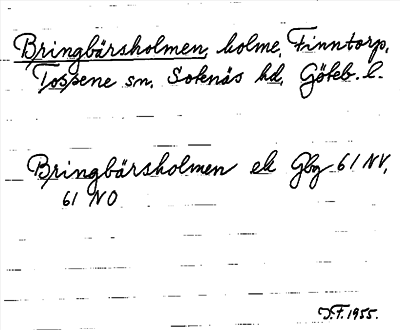 Bringbärsholmen, holme, Finntorp,
Tossene sn, Sotenäs hd, Göteb. l.
Bringbärsholmen ek Gbg 61 NV,
61 NO
J.F. 1955.